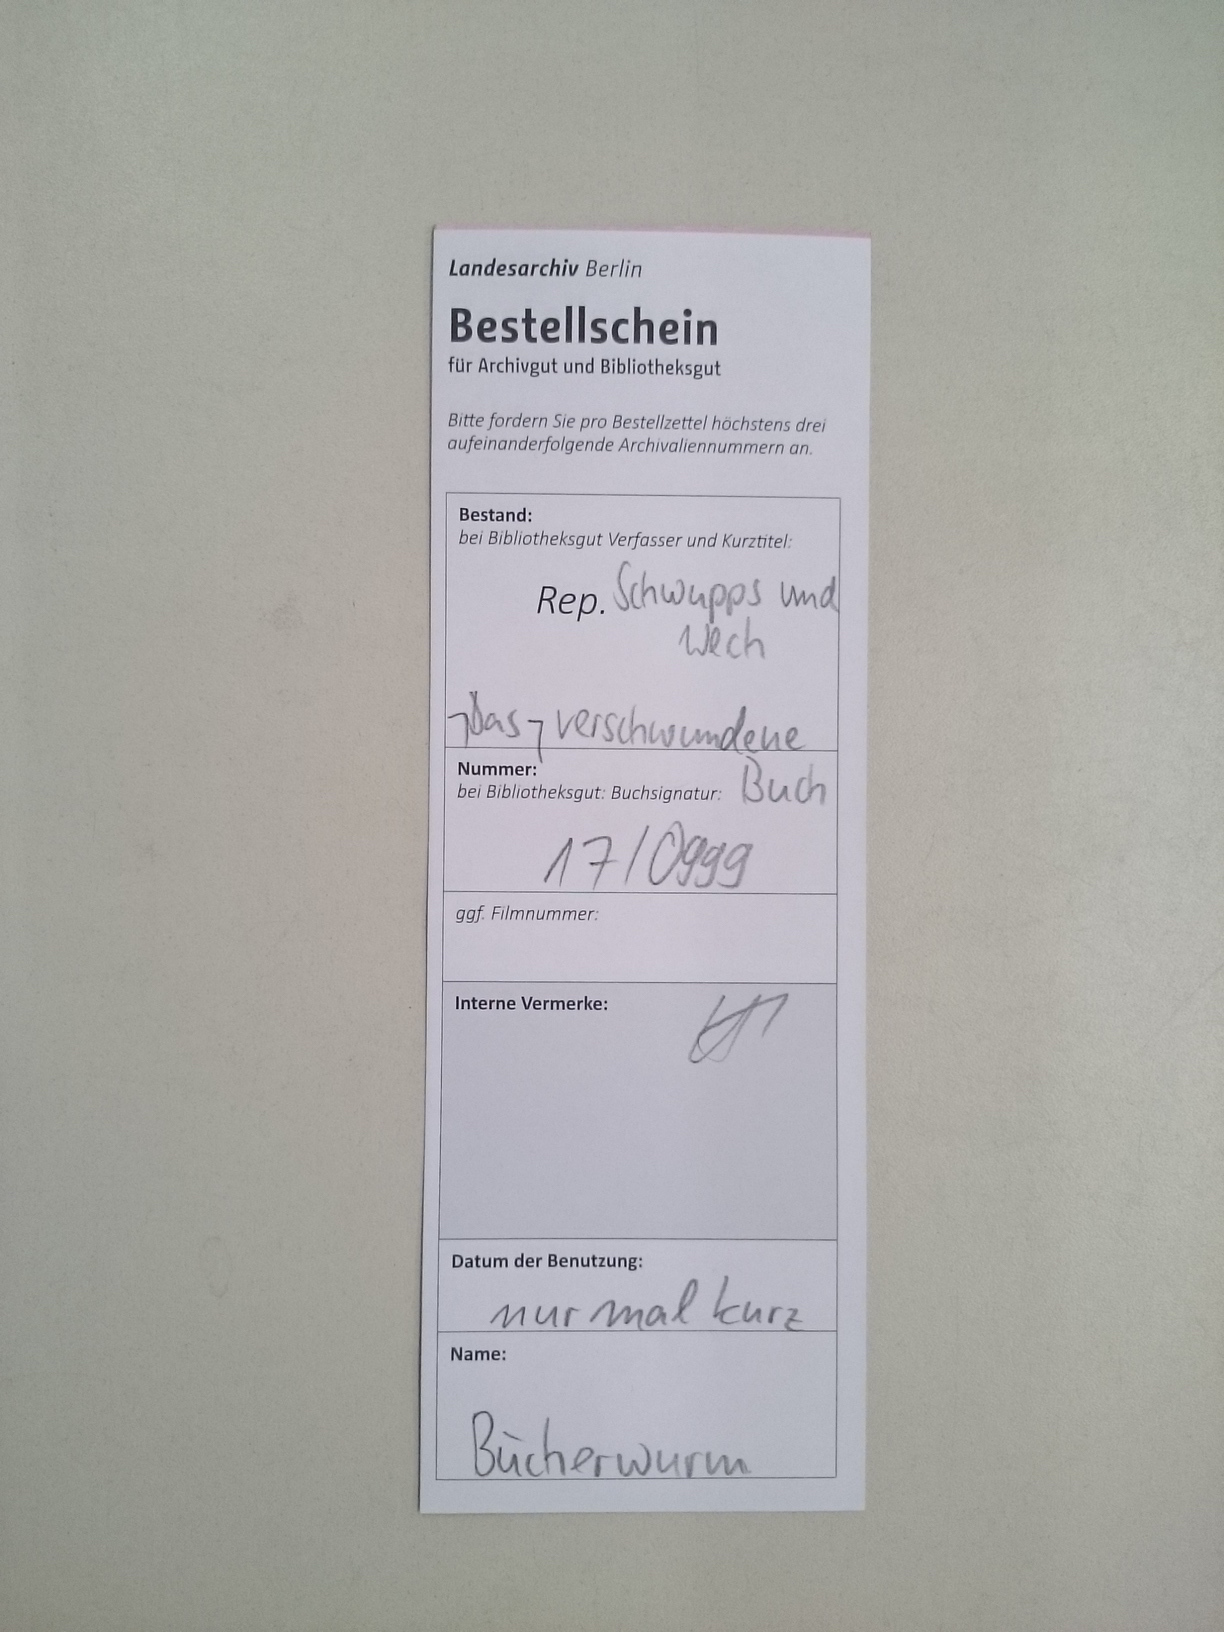 Landesarchiv Berlin
Bestellschein
für Archivgut und Bibliotheksgut
Bitte fordern Sie pro Bestellzettel höchstens drei
aufeinanderfolgende Archivaliennummern an.
Bestand:
bei Bibliotheksgut Verfasser und Kurztitel:
Rep. Schwupps und
Wech
Das verschwundene
Buch
Nummer:
bei Bibliotheksgut: Buchsignatur:
17/0999
ggf. Filmnummer:
Interne Vermerke:
Datum der Benutzung:
nur mal kurz
Name:
Bücherwurm